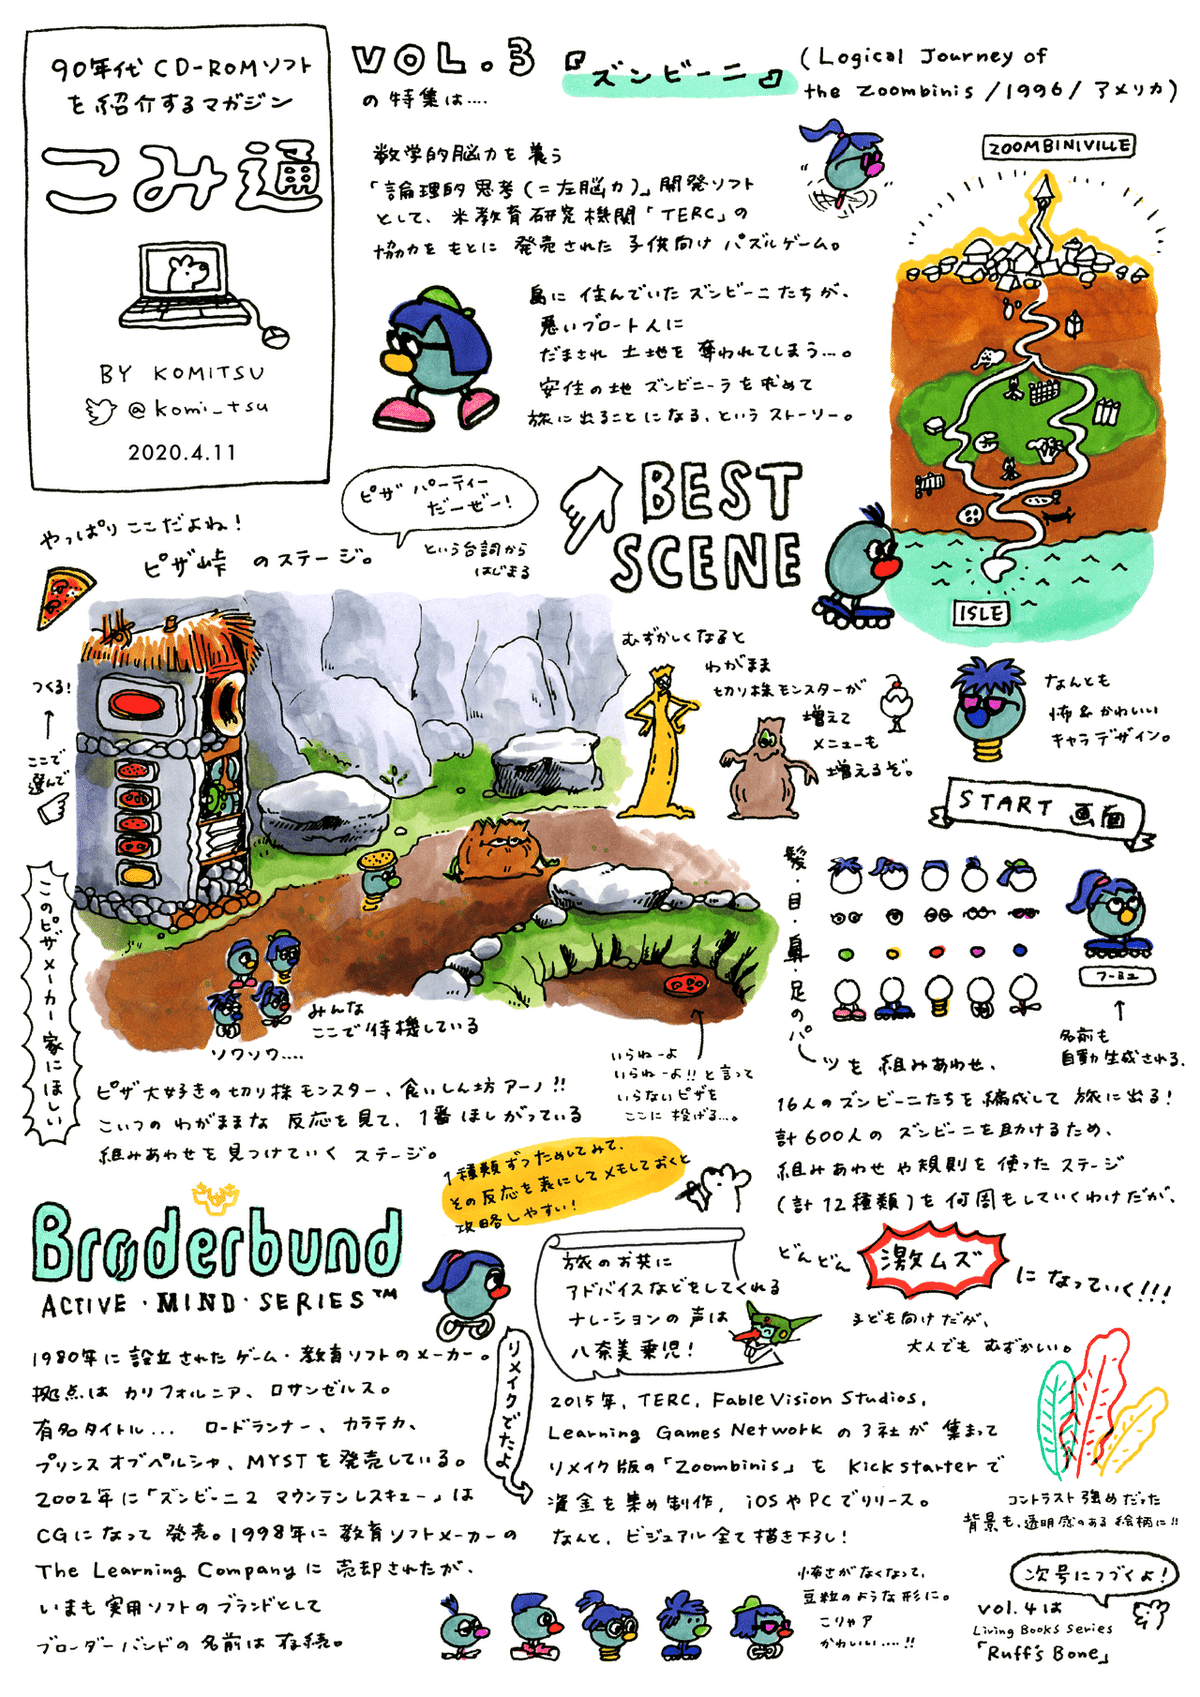 90年代 CD-ROMソフト
を紹介するマガジン
こみ通
BY KOMITSU
@komi_tsu
2020.4.11
VOL.3
の特集は‥‥
『ズンビーニ』
(Logical Journey of
the Zoombinis/1996/アメリカ)
数学的脳力を養う
「論理的思考(=左脳力)」開発ソフト
として、米教育研究機関「TERC」の
協力をもとに発売された子供向けパズルゲーム。
島に住んでいたズンビーニたちが、
悪いブロート人に
だまされ土地を奪われてしまう…。
安住の地ズンビニーラを求めて
旅に出ることになる、というストーリー。
ZOOMBINIVILLE
ISLE
BEST
SCENE
ピザパーティー
だーぜー!
という台詞から
はじまる
やっぱりここだよね!
ピザ峠のステージ。
つくる!
ここで
選んで
このピザメーカー家にほしい
むずかしくなると
わがまま
切り株モンスターが
増えて
メニューも
増えるぞ。
なんとも
怖&かわいい
キャラデザイン。
みんな
ここで待機している
ソワソワ‥‥
いらねーよ
いらねーよ!!と言って
いらないピザを
ここに投げる…。
ピザ大好きの切り株モンスター、食いしん坊アーノ!!
こいつのわがままな反応を見て、1番ほしがっている
組みあわせを見つけていくステージ。
1種類ずつためしてみて、
その反応を表にしてメモしておくと
攻略しやすい!
START 画面
髪・目・鼻・足のパーツを組みあわせ、
フーミュ
名前も
自動生成される.
16人のズンビーニたちを編成して旅に出る!
計600人のズンビーニを助けるため、
組みあわせや規則を使ったステージ
(計12種類)を何周もしていくわけだが、
どんどん
激ムズ
になっていく!!!
子ども向けだが、
大人でもむずかしい。
Brøderbund
ACTIVE・MIND・SERIES™
1980年に設立されたゲーム・教育ソフトのメーカー。
拠点はカリフォルニア、ロサンゼルス。
有名タイトル... ロードランナー、カラテカ、
プリンスオブペルシャ、MYSTを発売している。
2002年に「ズンビーニ2 マウンテンレスキュー」は
CGになって発売。1998年に教育ソフトメーカーの
The Learning Companyに売却されたが、
いまも実用ソフトのブランドとして
ブローダーバンドの名前は存続。
旅のお共に
アドバイスなどをしてくれる
ナレーションの声は
八奈美乗児!
リメイクでたよ
2015年, TERC, FableVision Studios,
Learning Games Networkの3社が集まって
リメイク版の「Zoombinis」をKickstarterで
資金を集め制作, iOSやPCでリリース。
なんと、ビジュアル全て描き下ろし!
コントラスト強めだった
背景も、透明感のある絵柄に!!
怖さがなくなって、
豆粒のような形に。
こりゃア
かわいい‥‥!!
次号につづくよ!
vol.4は
Living Books Series
「Ruff's Bone」